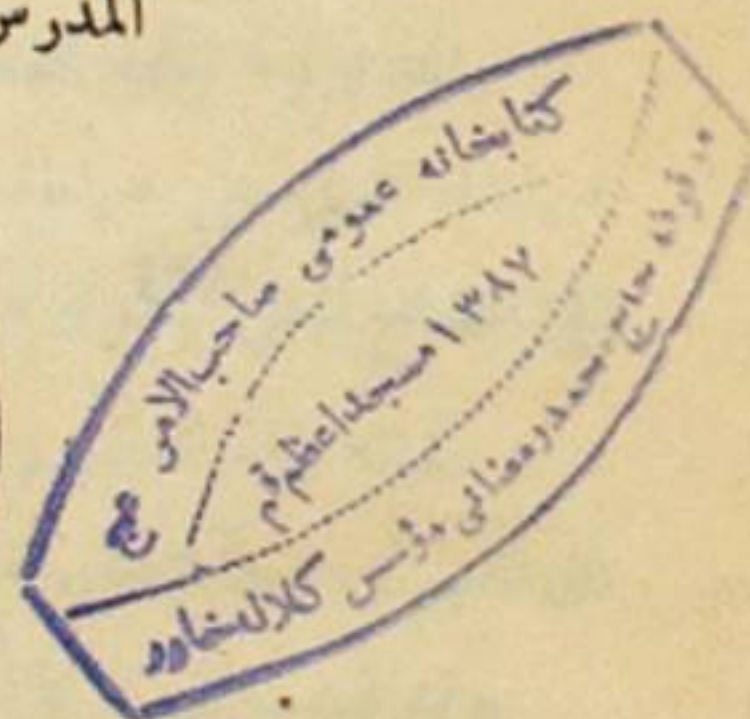 المدرس
كتابخانه عمومی صاحب الامر عج
۱۳۸۷ مسجد اعظم قم
موقوفه حاج محمد رمضانی مؤسس کلاله خاور